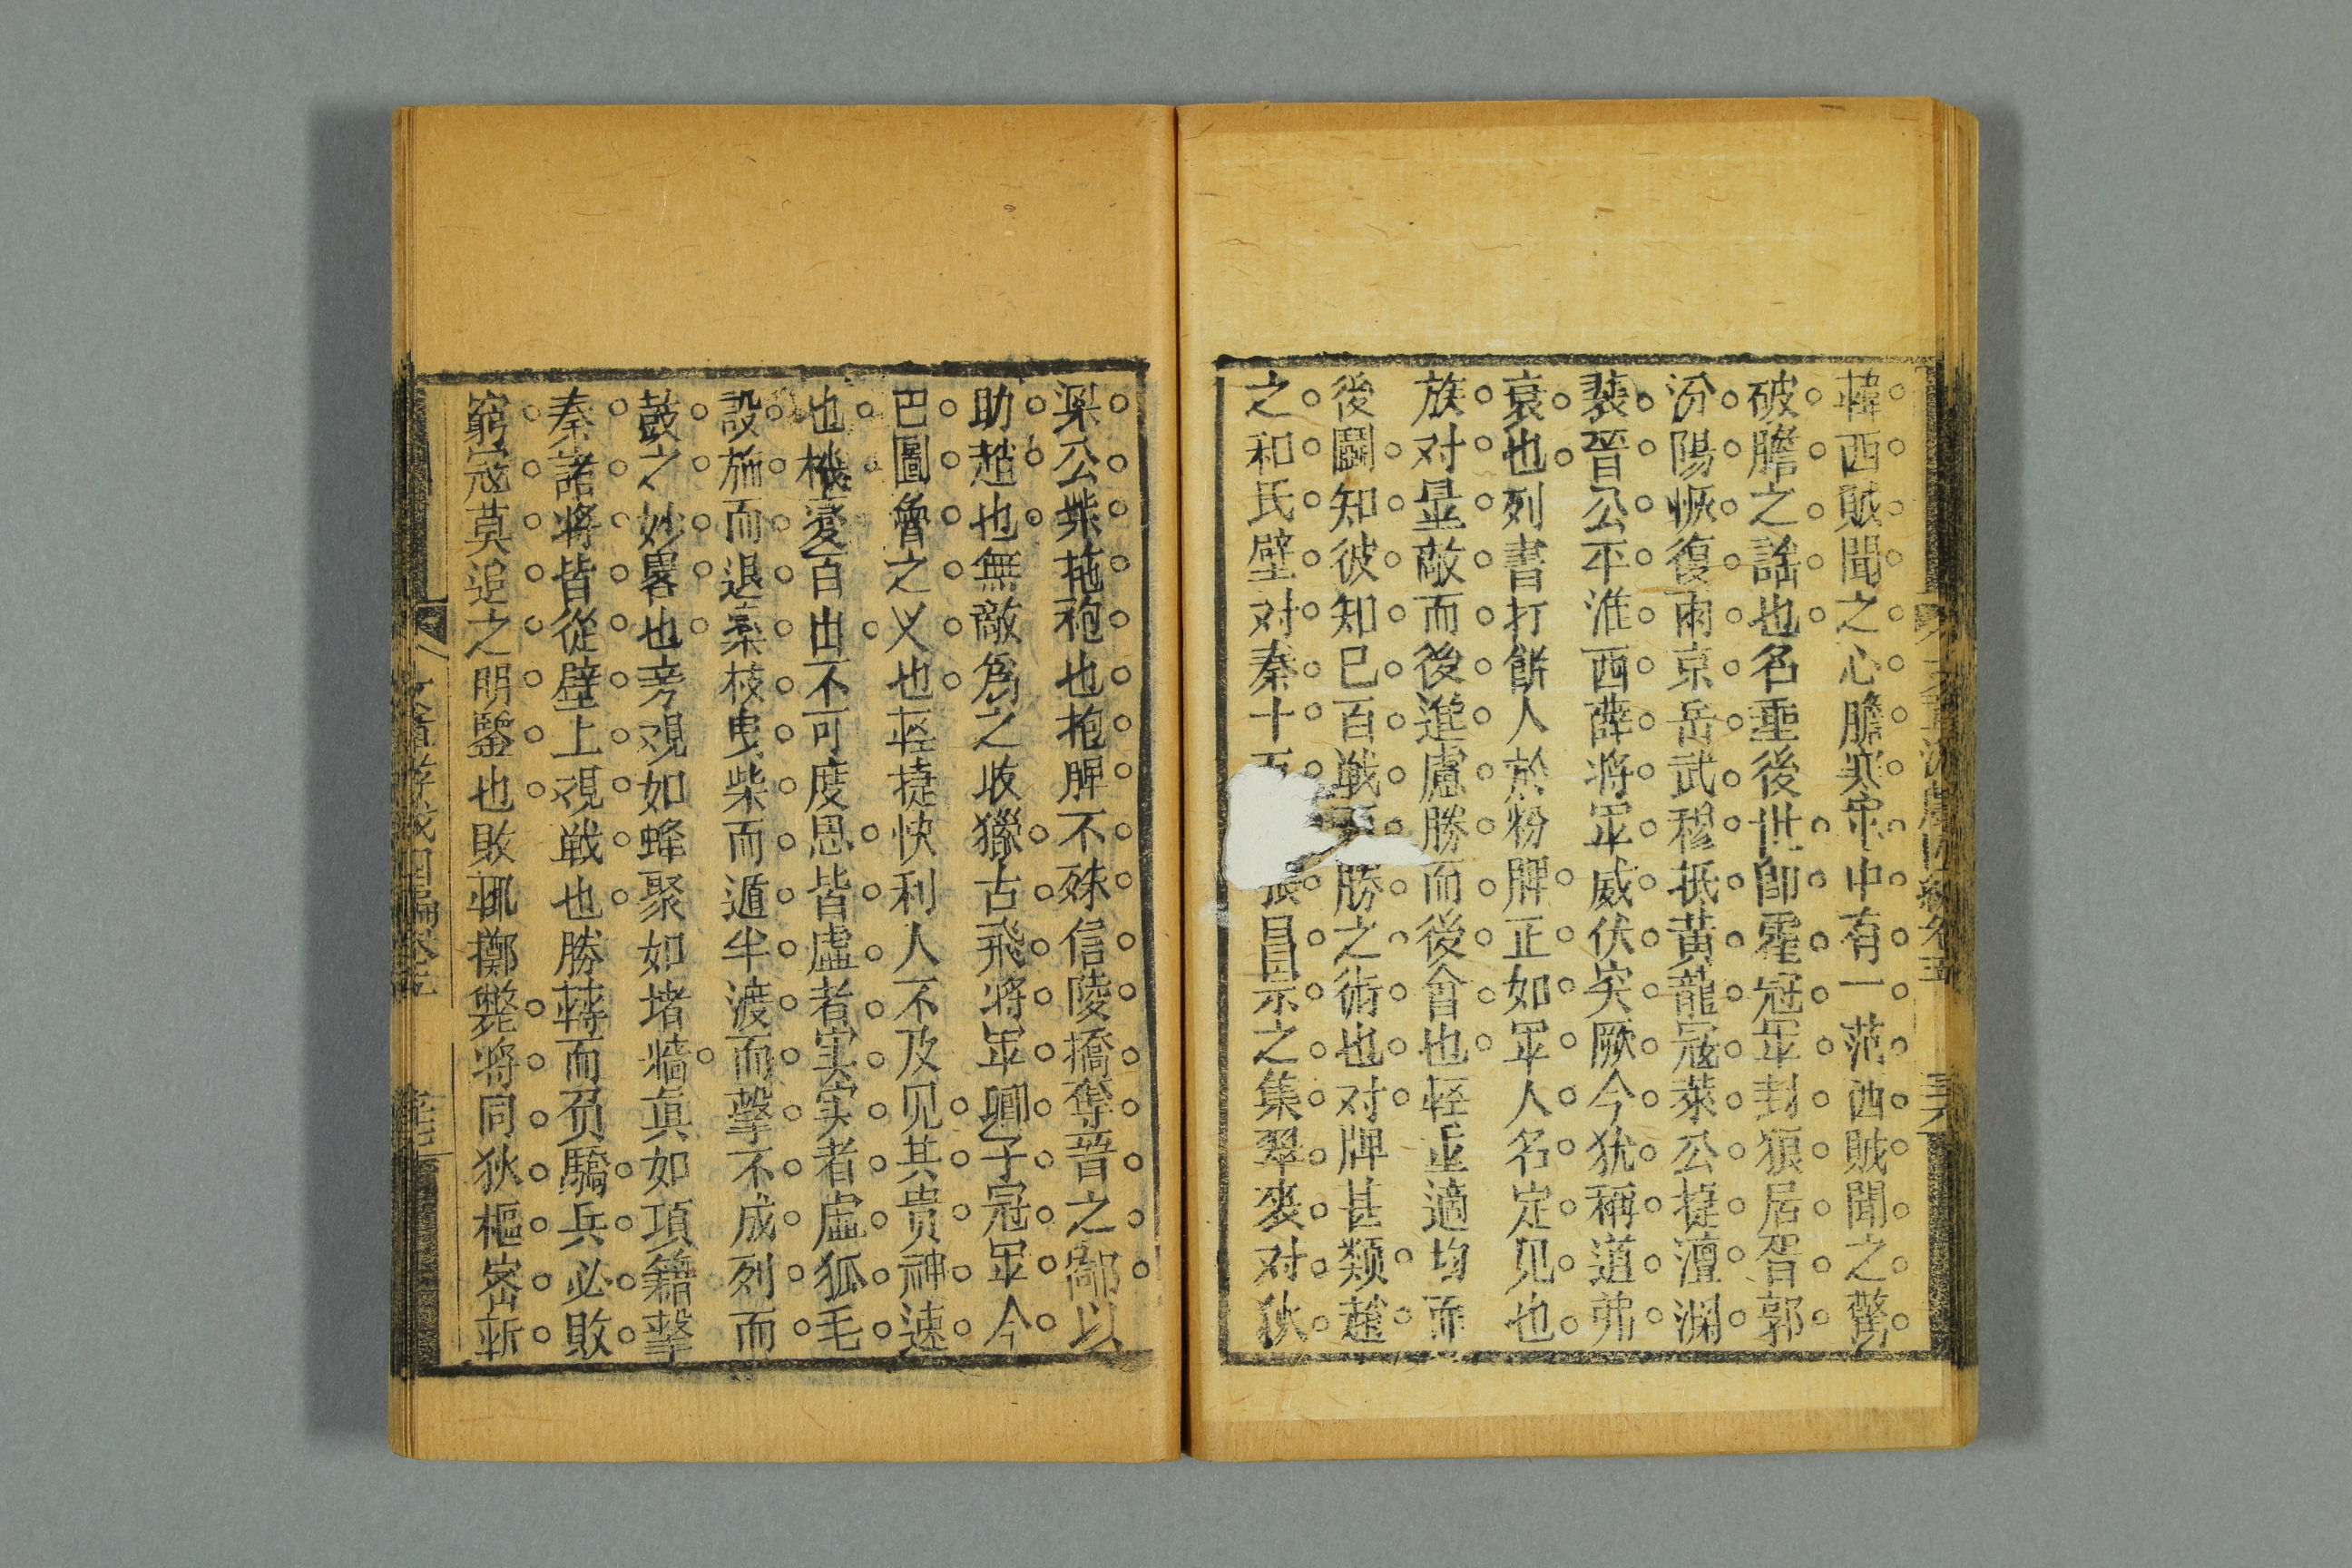 韓西賊聞之心膽寒軍中有一范西賊聞之驚
破膽之謡也名重後世卽霍冠軍封狼居胥郭
汾陽恢復兩京岳武穆抵黃龍冦萊公捷澶淵
裴晉公平淮西薛將軍威伏突厥今犹稱道弗
衰也列書打餅人於粉牌正如軍人名定见也
族对㬎敵而後進慮勝而後會也輕重適均而
後鬬知彼知已百戦百勝之術也对牌甚類趙
之和氏璧对秦十五 宗之集翠裘对狄
梁公紫拖袍也抱牌不殊信陵撟奪晉之鄗以
助趙也無敵為之收獵古飛將軍卿子冠軍今
巴圖魯之义也軽捷快利人不及见其贵神速
也機變百出不可度思皆虛者実実者虛狐毛
設斾而退欒枝曳柴而遁半渡而擊不成列而
鼓之妙畧也旁观如蜂聚如堵墻真如項籍擊
秦諸將皆從壁上观戦也勝蒋而负驕兵必敗
窮冦莫追之明鑒也敗輒擲斃将同狄樞峦斬
文章游戏四編卷五